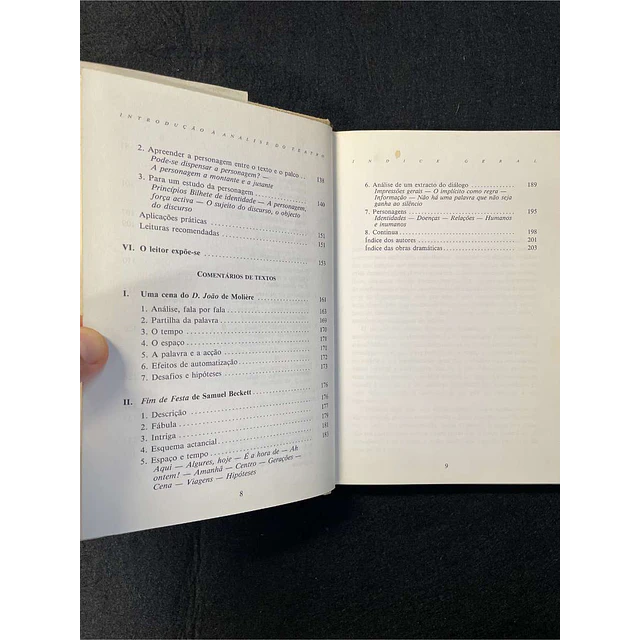 INTRODUÇÃO À ANÁLISE DO TEATRO
2. Apreender a personagem entre o texto e o palco .. 138
Pode-se dispensar a personagem? —
A personagem a montante e a jusante
3. Para um estudo da personagem ............ 140
Princípios Bilhete de identidade — A personagem,
força activa — O sujeito do discurso, o objecto
do discurso
Aplicações práticas ............ 151
Leituras recomendadas ............ 151
VI. O leitor expõe-se ............ 153
COMENTÁRIOS DE TEXTOS
I. Uma cena do D. João de Molière ............ 161
1. Análise, fala por fala ............ 163
2. Partilha da palavra ............ 169
3. O tempo ............ 170
4. O espaço ............ 170
5. A palavra e a acção ............ 171
6. Efeitos de automatização ............ 172
7. Desafios e hipóteses ............ 173
II. Fim de Festa de Samuel Beckett ............ 176
1. Descrição ............ 176
2. Fábula ............ 177
3. Intriga ............ 179
4. Esquema actancial ............ 181
5. Espaço e tempo ............ 183
Aqui — Algures, hoje — É a hora de — Ah
ontem! — Amanhã — Centro — Gerações —
Cena — Viagens — Hipóteses
8
ÍNDICE GERAL
6. Análise de um extracto do diálogo ............ 189
Impressões gerais — O implícito como regra —
Informação — Não há uma palavra que não seja
ganha ao silêncio
7. Personagens ............ 195
Identidades — Doenças — Relações — Humanos
e inumanos
8. Continua ............ 198
Índice dos autores ............ 201
Índice das obras dramáticas ............ 203
9